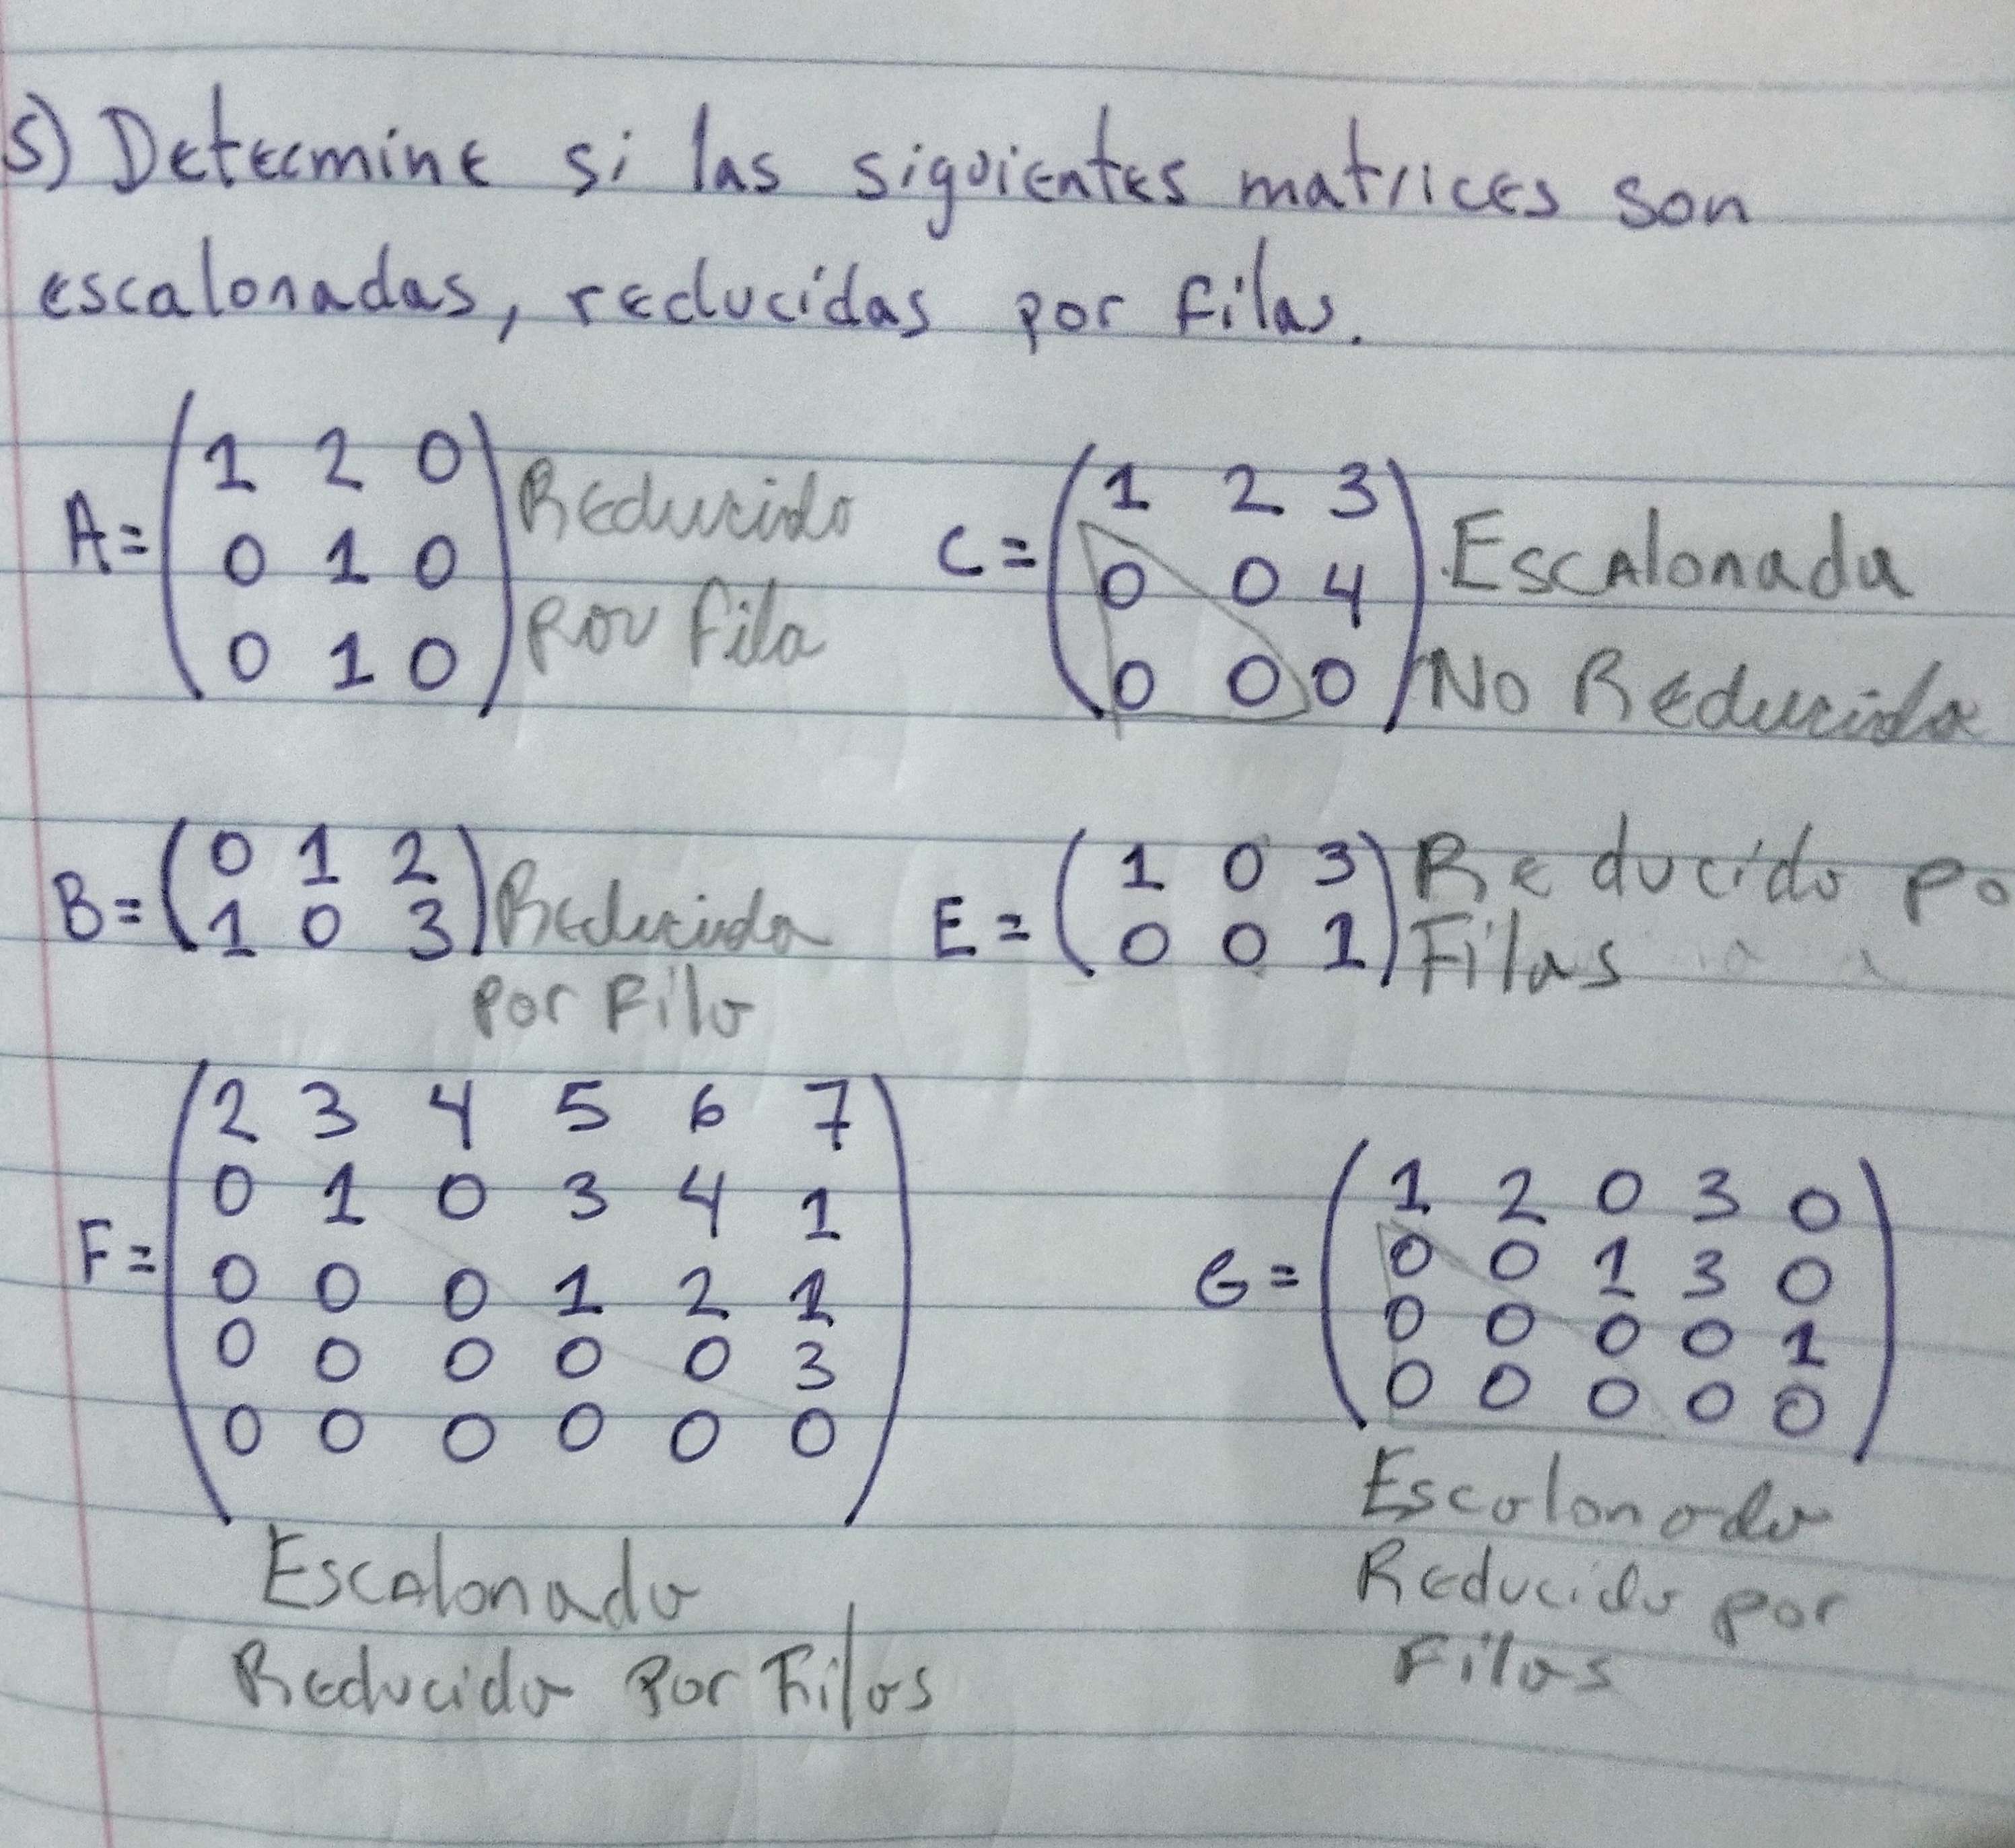 5) Determine si las siguientes matrices son
escalonadas, reducidas por filas.
A = (1 2 0
0 1 0
0 1 0)
Reducido
por fila
C = (1 2 3
0 0 4
0 0 0)
Escalonada
No Reducida
B = (0 1 2
1 0 3)
Reducida
por Fila
E = (1 0 3
0 0 1)
Reducido po
Filas
F = (2 3 4 5 6 7
0 1 0 3 4 1
0 0 0 1 2 1
0 0 0 0 0 3
0 0 0 0 0 0)
Escalonada
Reducida Por Filas
G = (1 2 0 3 0
0 0 1 3 0
0 0 0 0 1
0 0 0 0 0)
Escalonada
Reducida por
Filas